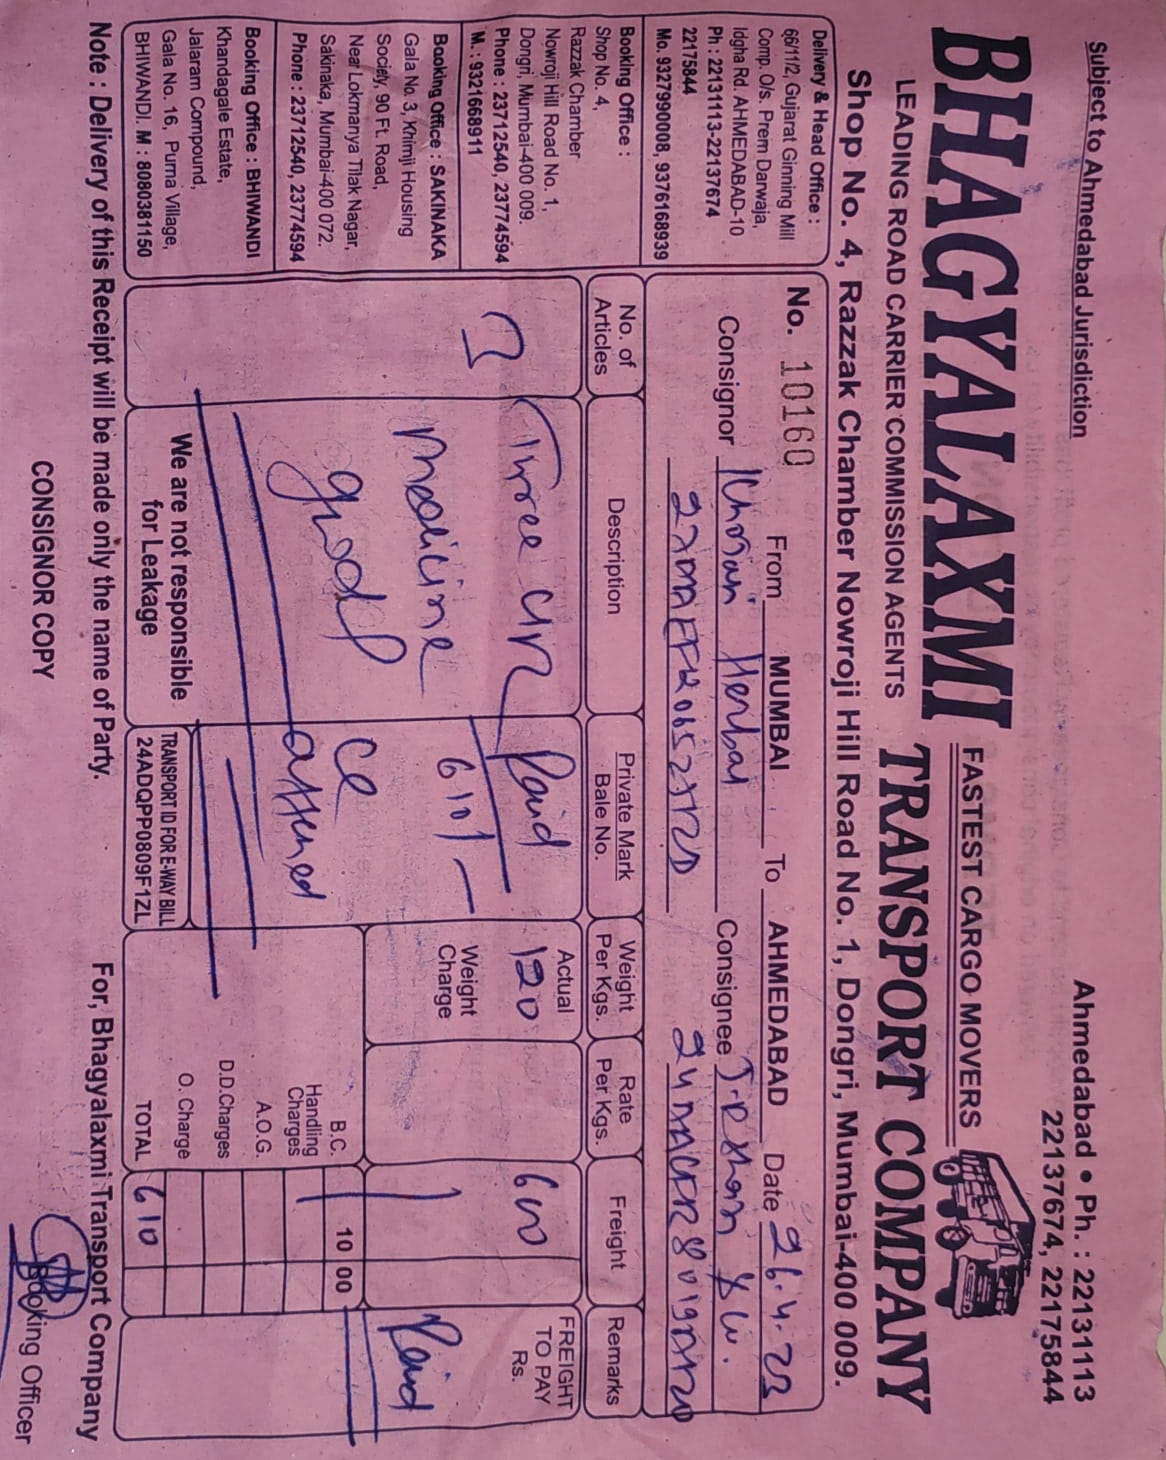 Subject to Ahmedabad Jurisdiction
Ahmedabad • Ph. : 22131113
22137674, 22175844
BHAGYALAXMI
FASTEST CARGO MOVERS
TRANSPORT COMPANY
LEADING ROAD CARRIER COMMISSION AGENTS
Shop No. 4, Razzak Chamber Nowroji Hill Road No. 1, Dongri, Mumbai-400 009.
Delivery & Head Office :
66/11/2, Gujarat Ginning Mill
Comp. O/s. Prem Darwaja,
Idgha Rd. AHMEDABAD-10
Ph : 22131113-22137674
22175844
Mo. 9327990008, 9376168939
Booking Office :
Shop No. 4,
Razzak Chamber
Nowroji Hill Road No. 1,
Dongri, Mumbai-400 009.
Phone : 23712540, 23774594
M. : 9321668911
Booking Office : SAKINAKA
Gala No. 3, Khimji Housing
Society, 90 Ft. Road,
Near Lokmanya Tilak Nagar,
Sakinaka, Mumbai-400 072.
Phone : 23712540, 23774594
Booking Office : BHIWANDI
Khandagale Estate,
Jalaram Compound,
Gala No. 16, Purna Village,
BHIWANDI. M : 8080381150
No. 10160 From MUMBAI To AHMEDABAD Date 26.4.23
Consignor Herbal Consignee
No. of Articles
Description
Private Mark Bale No.
Weight Per Kgs.
Rate Per Kgs.
Freight
Remarks
3
Three
medicine
good
Paid
610/-
Actual
120
Weight Charge
600
FREIGHT TO PAY Rs.
Paid
B.C. 10 00
Handling Charges
A.O.G.
D.D.Charges
O. Charge
TOTAL 610
We are not responsible
for Leakage
TRANSPORT ID FOR E-WAY BILL
24ADQPP0809F1ZL
Note : Delivery of this Receipt will be made only the name of Party.
For, Bhagyalaxmi Transport Company
CONSIGNOR COPY
Booking Officer